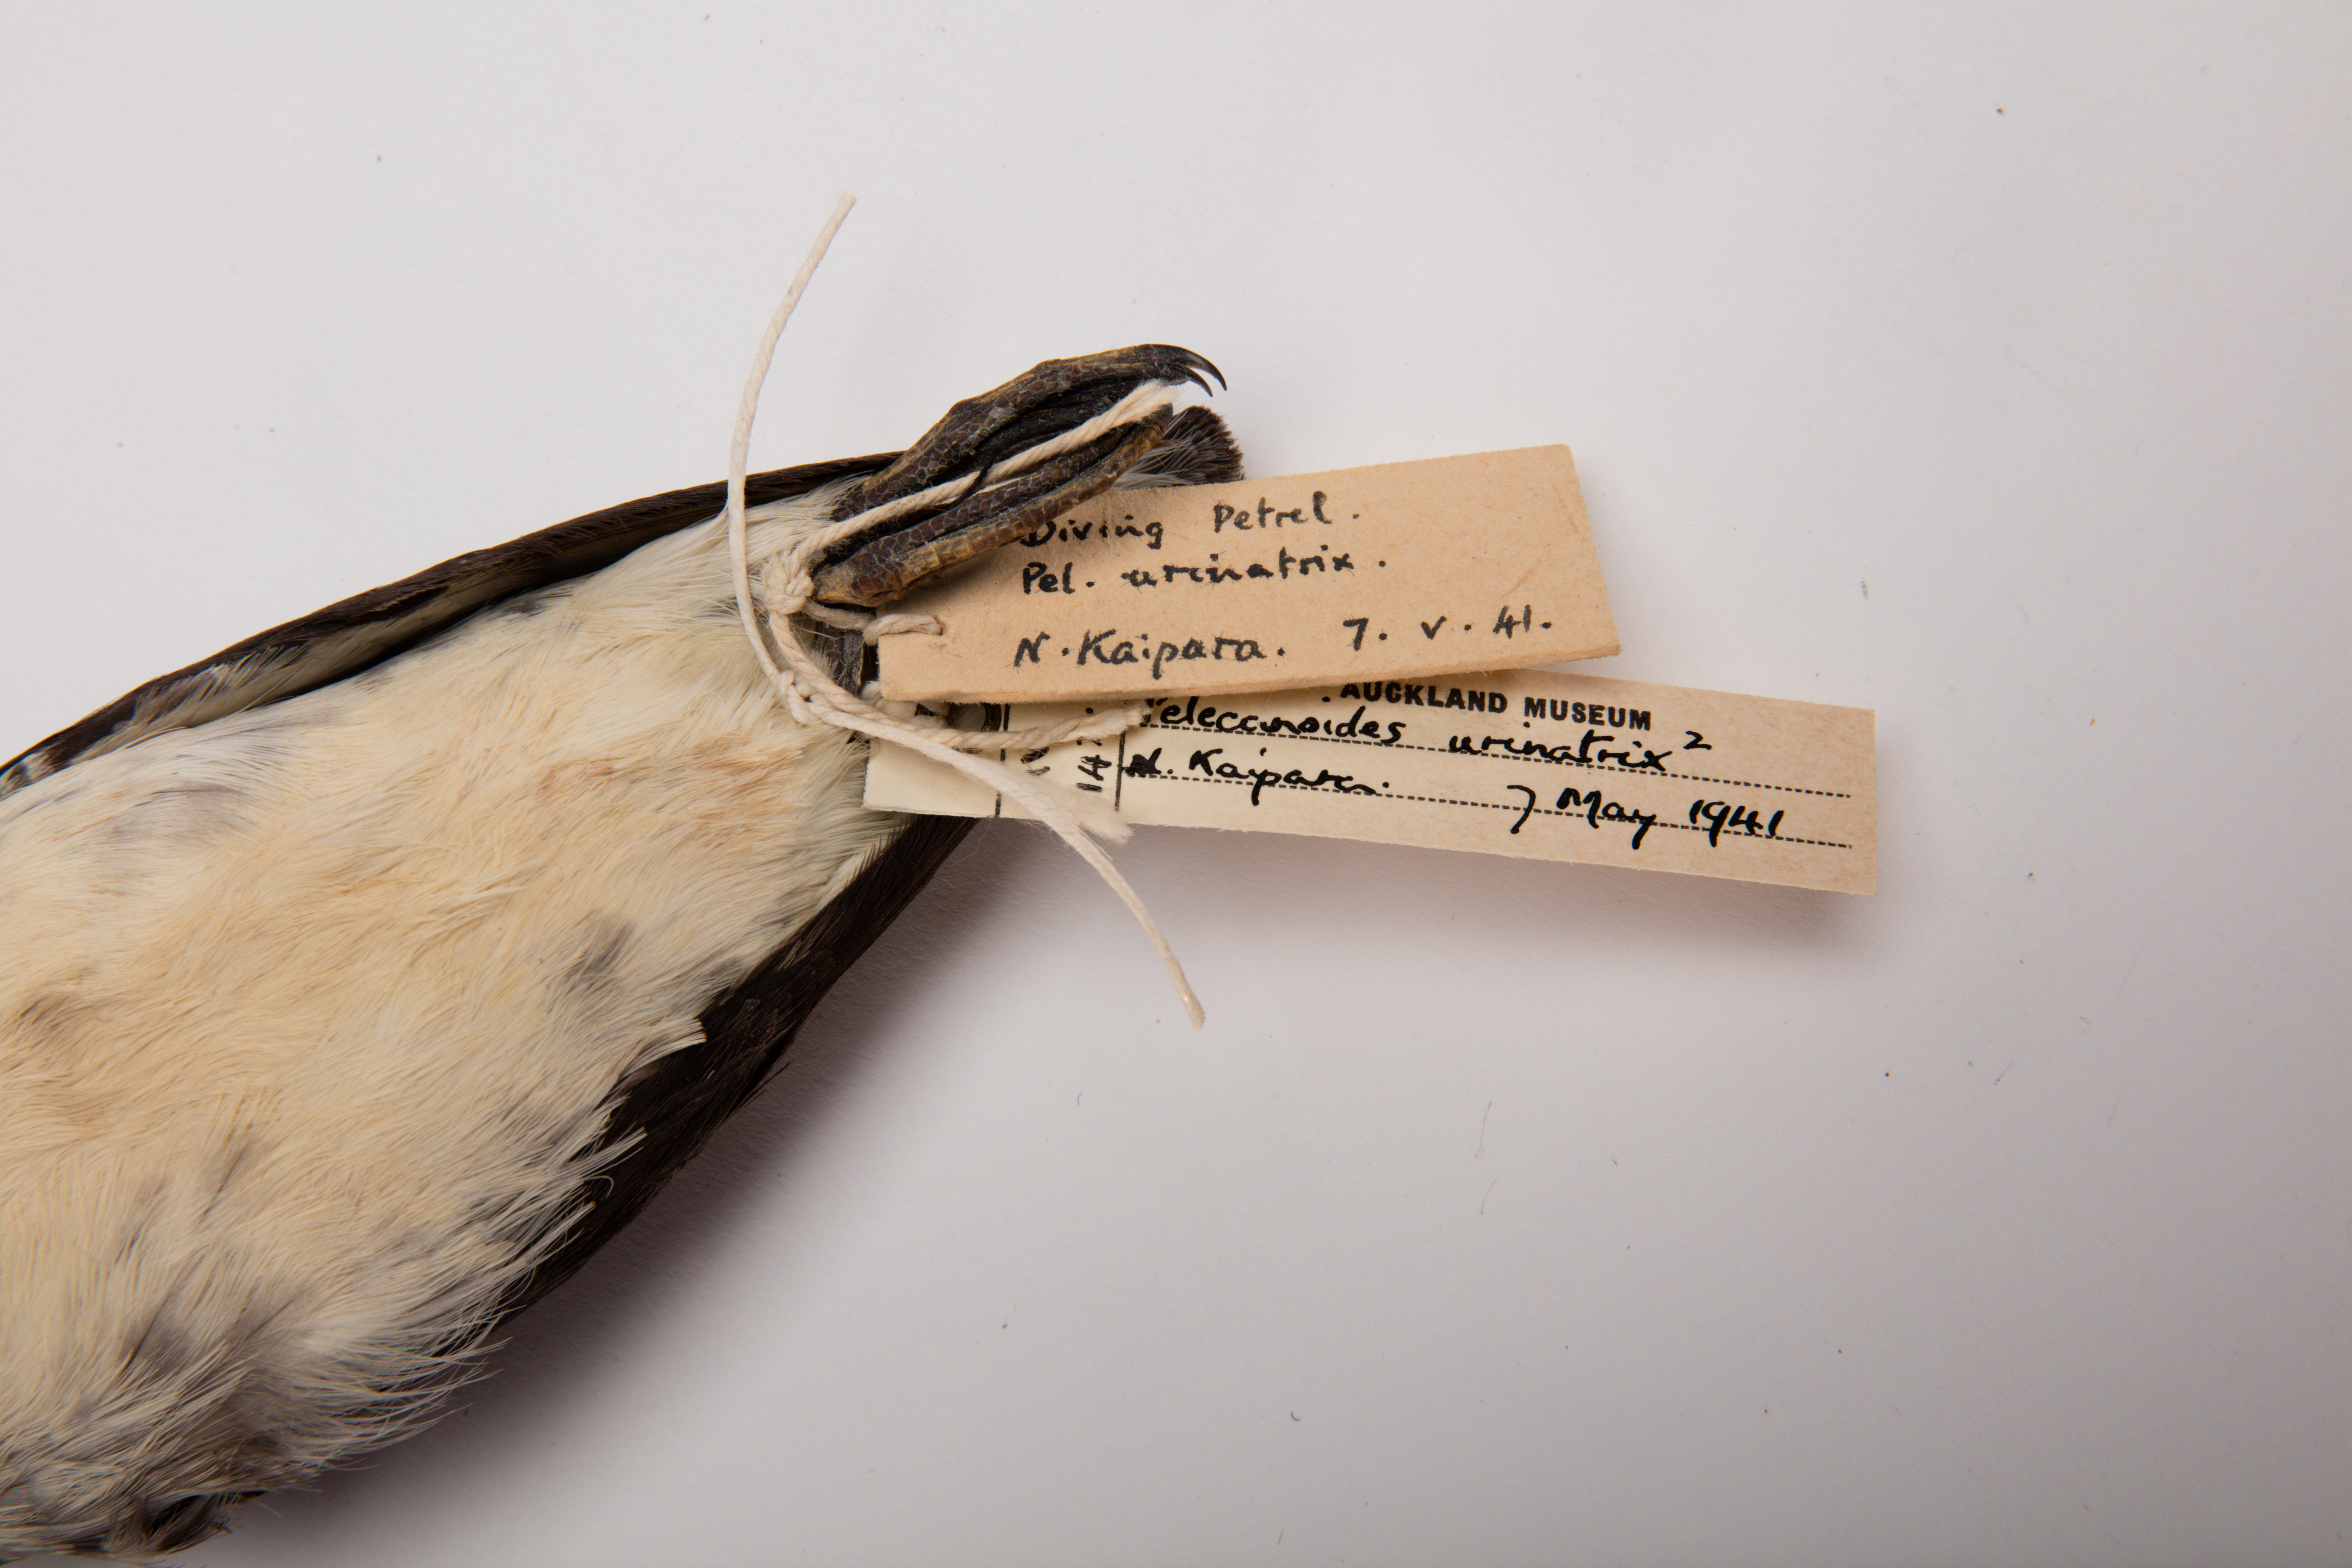 Diving Petrel.
Pel. urinatrix.
N. Kaipara. 7. V. 41.
AUCKLAND MUSEUM
Pelecanoides urinatrix 2
N. Kaipara. 7 May 1941